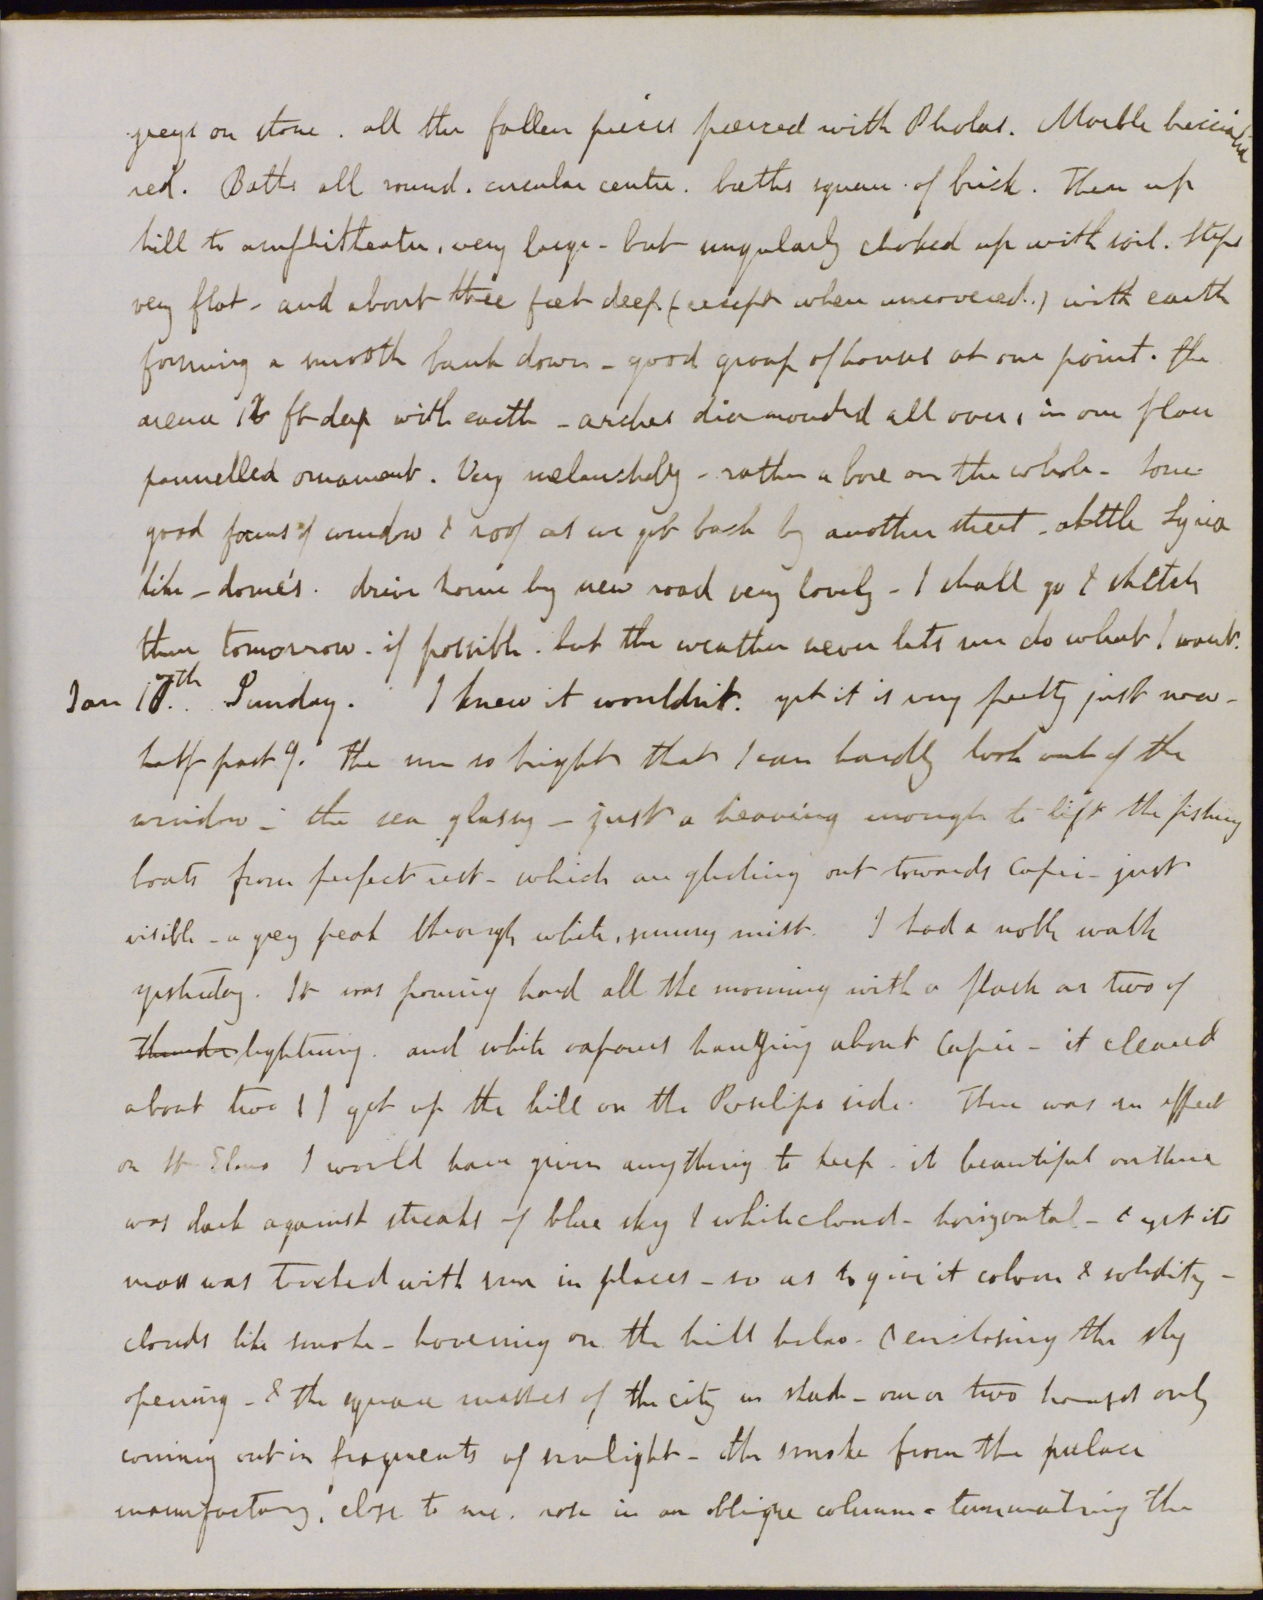 greys on stone. all the fallen pieces pierced with Pholas. Marble
red. Baths all round. circular centre. baths square. of brick. Then up
hill to amphitheatre, very large - but singularly choked up with soil. Steps
very flat - and about three feet deep (except when uncovered..) with earth
forming a smooth bank down - good group of houses at one point. the
arena 16 ft deep with earth - arches diamonded all over, in one place
pannelled ornament. Very melancholy - rather a bore on the whole - Some
good forms of window & roof as we got back by another street - a little Syria
like - dome's. drive home by new road very lovely - I shall go & sketch
there tomorrow. if possible. but the weather never lets me do what I want.
Jan 17th. Sunday. I knew it wouldn't. yet it is very pretty just now -
half past 9. The sun so bright that I can hardly look out of the
window - the sea glassy - just a heaving enough to lift the fishing
boats from perfect rest - which are gliding out towards Capri - just
visible - a grey peak through white, sunny mist. I had a noble walk
yesterday. It was pouring hard all the morning with a flash or two of
thunder lightning. and white vapours hanging about Capri - it cleared
about two & I got up the hill on the Posilipo side. There was an effect
on St Elmo I would have given anything to keep. it beautiful outline
was dark against streaks of blue sky & white cloud - horizontal - & yet its
mass was touched with sun in places - so as to give it colour & solidity -
clouds like smoke - hovering on the hill below - & enclosing the sky
opening - & the square masses of the city in shade - one or two houses only
coming out in fragments of sunlight - the smoke from the palace
manufactory, close to me. rose in an oblique column - terminating the